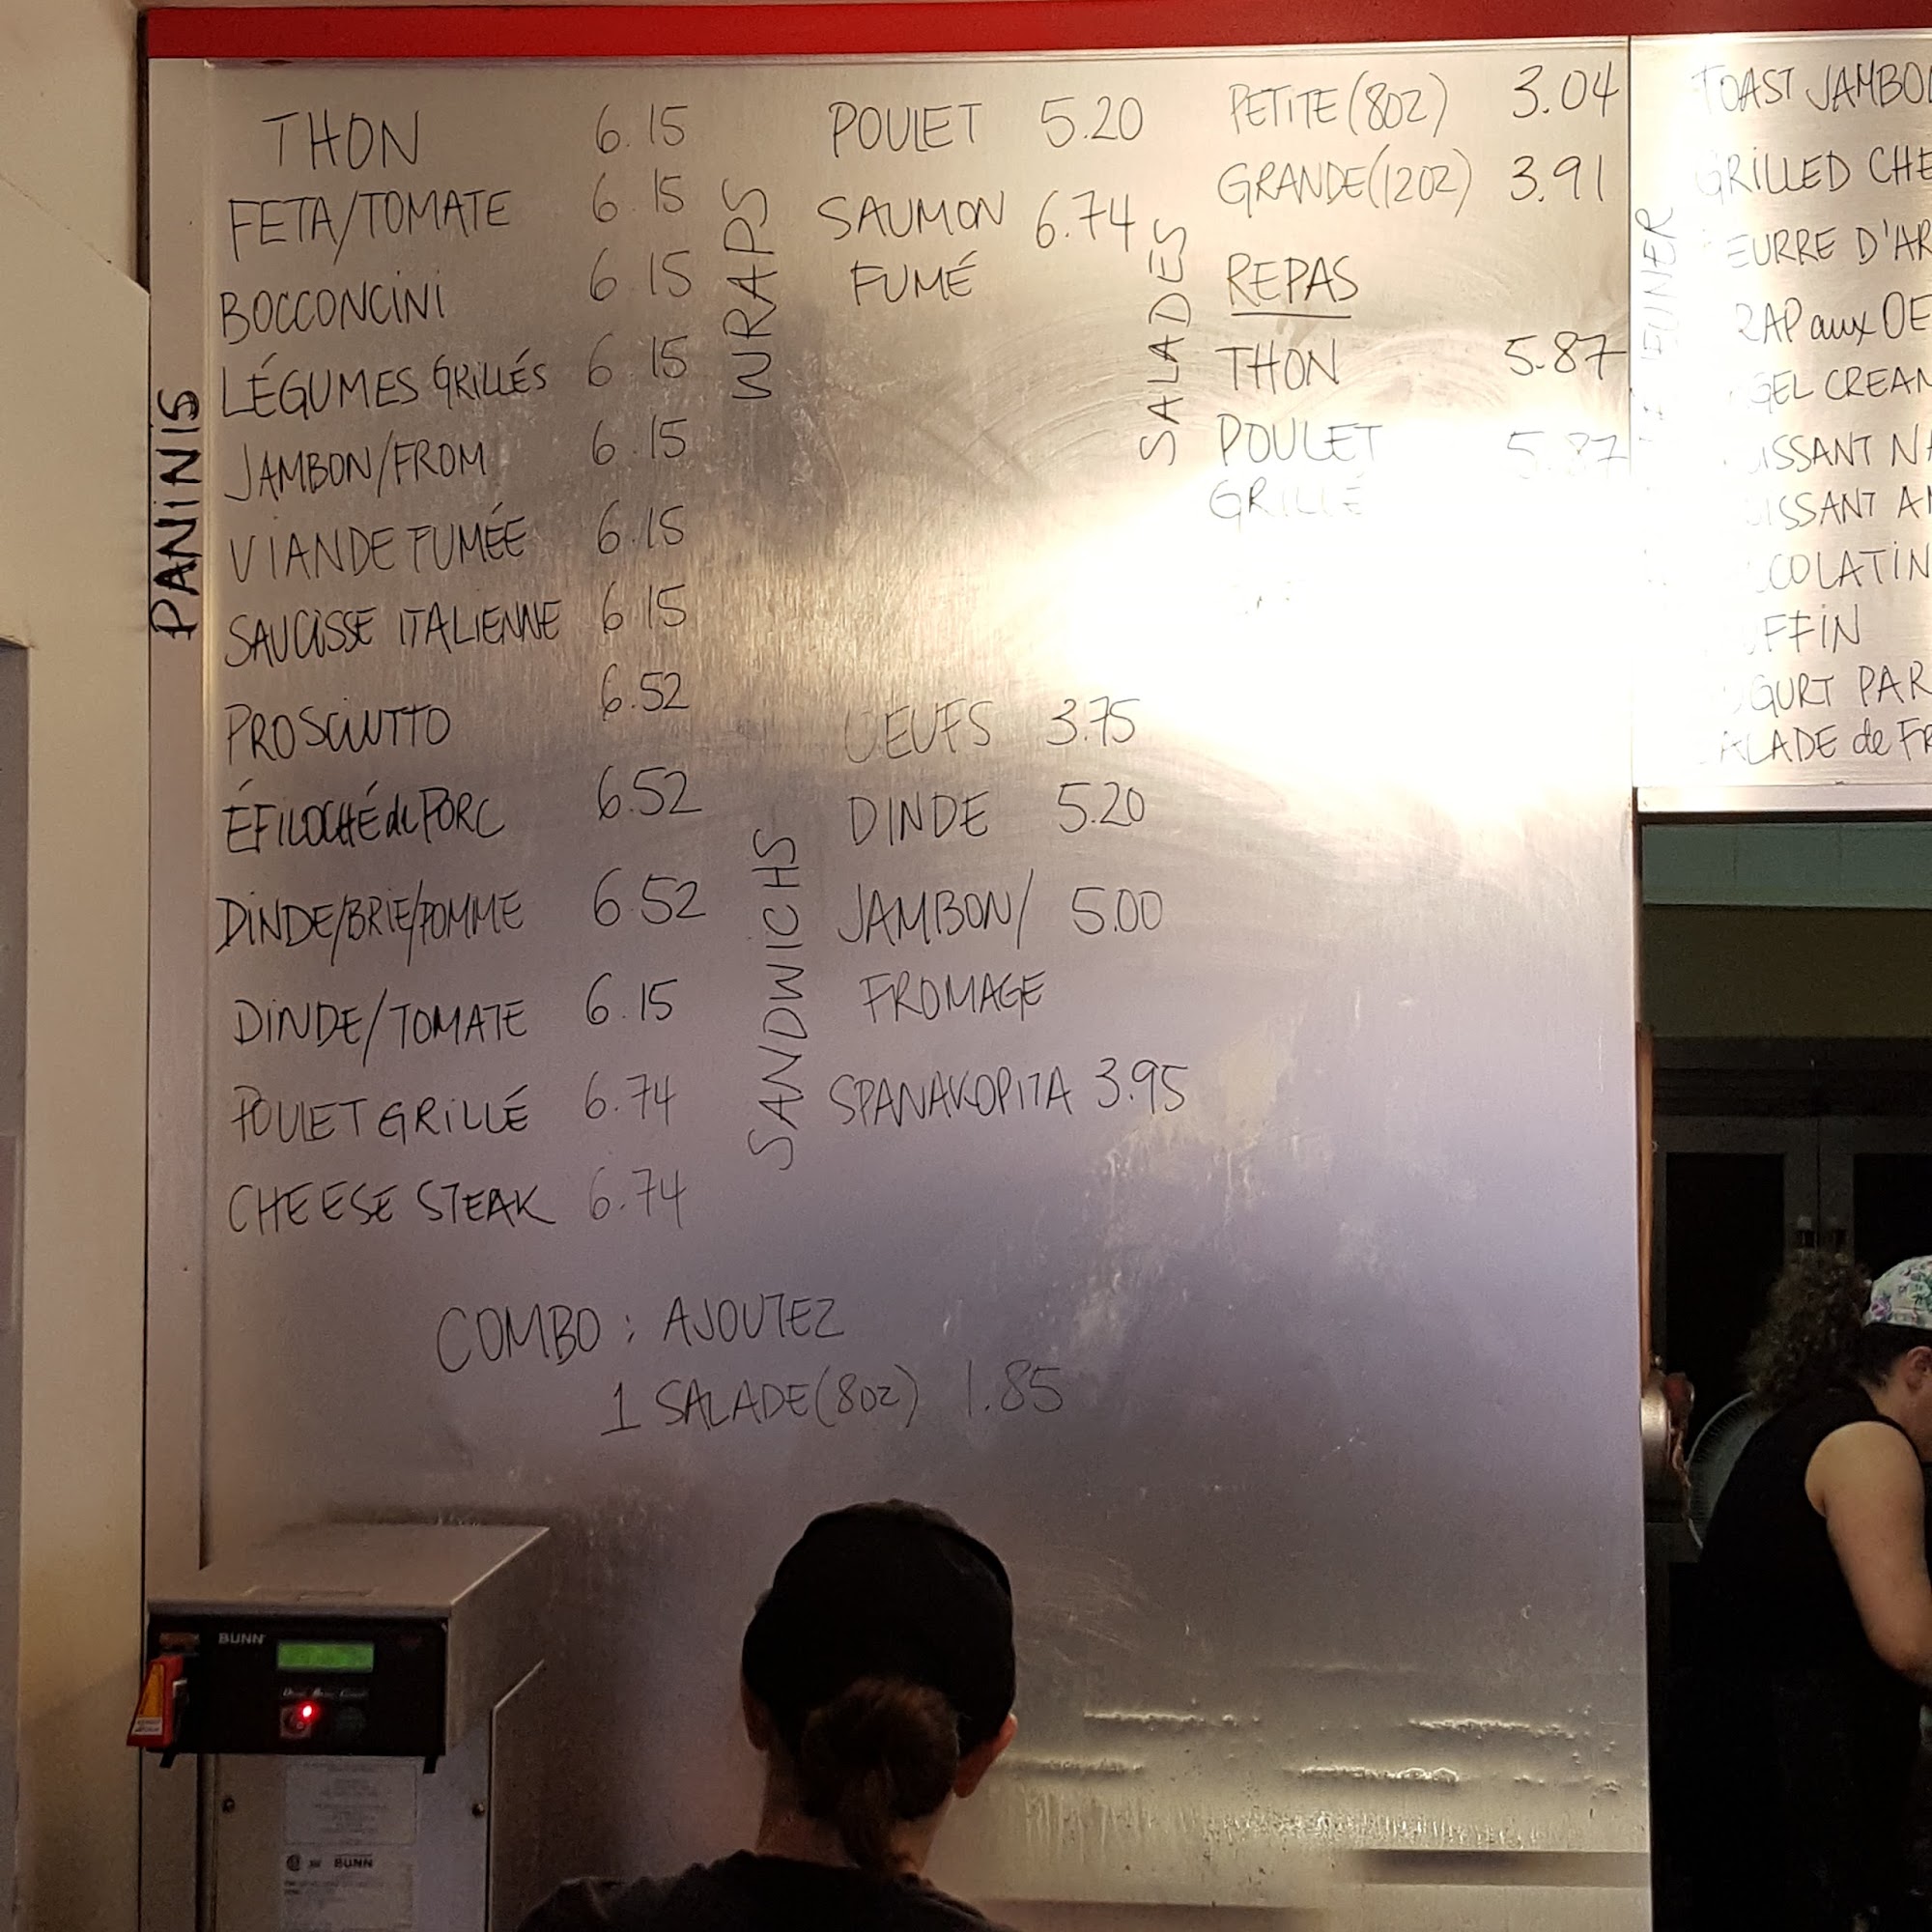 PANINIS
THON 6.15
FETA/TOMATE 6.15
BOCCONCINI 6.15
LÉGUMES GRILLÉS 6.15
JAMBON/FROM 6.15
VIANDE FUMÉE 6.15
SAUCISSE ITALIENNE 6.15
PROSCIUTTO 6.52
ÉFILOCHÉ de PORC 6.52
DINDE/BRIE/POMME 6.52
DINDE/TOMATE 6.15
POULET GRILLÉ 6.74
CHEESE STEAK 6.74
WRAPS
POULET 5.20
SAUMON 6.74
FUMÉ
SANDWICHS
OEUFS 3.75
DINDE 5.20
JAMBON/ 5.00
FROMAGE
SPANAKOPITA 3.95
SALADES
PETITE (8OZ) 3.04
GRANDE (12OZ) 3.91
REPAS
THON 5.87
POULET 5.87
GRILLÉ
COMBO : AJOUTEZ
1 SALADE (8OZ) 1.85
TOAST JAMBO
GRILLED CHE
EURRE D'AR
RAP aux OE
GEL CREAM
ISSANT NA
ISSANT A
COLATIN
FFIN
GURT PAR
ALADE de FR
BUNN
BUNN